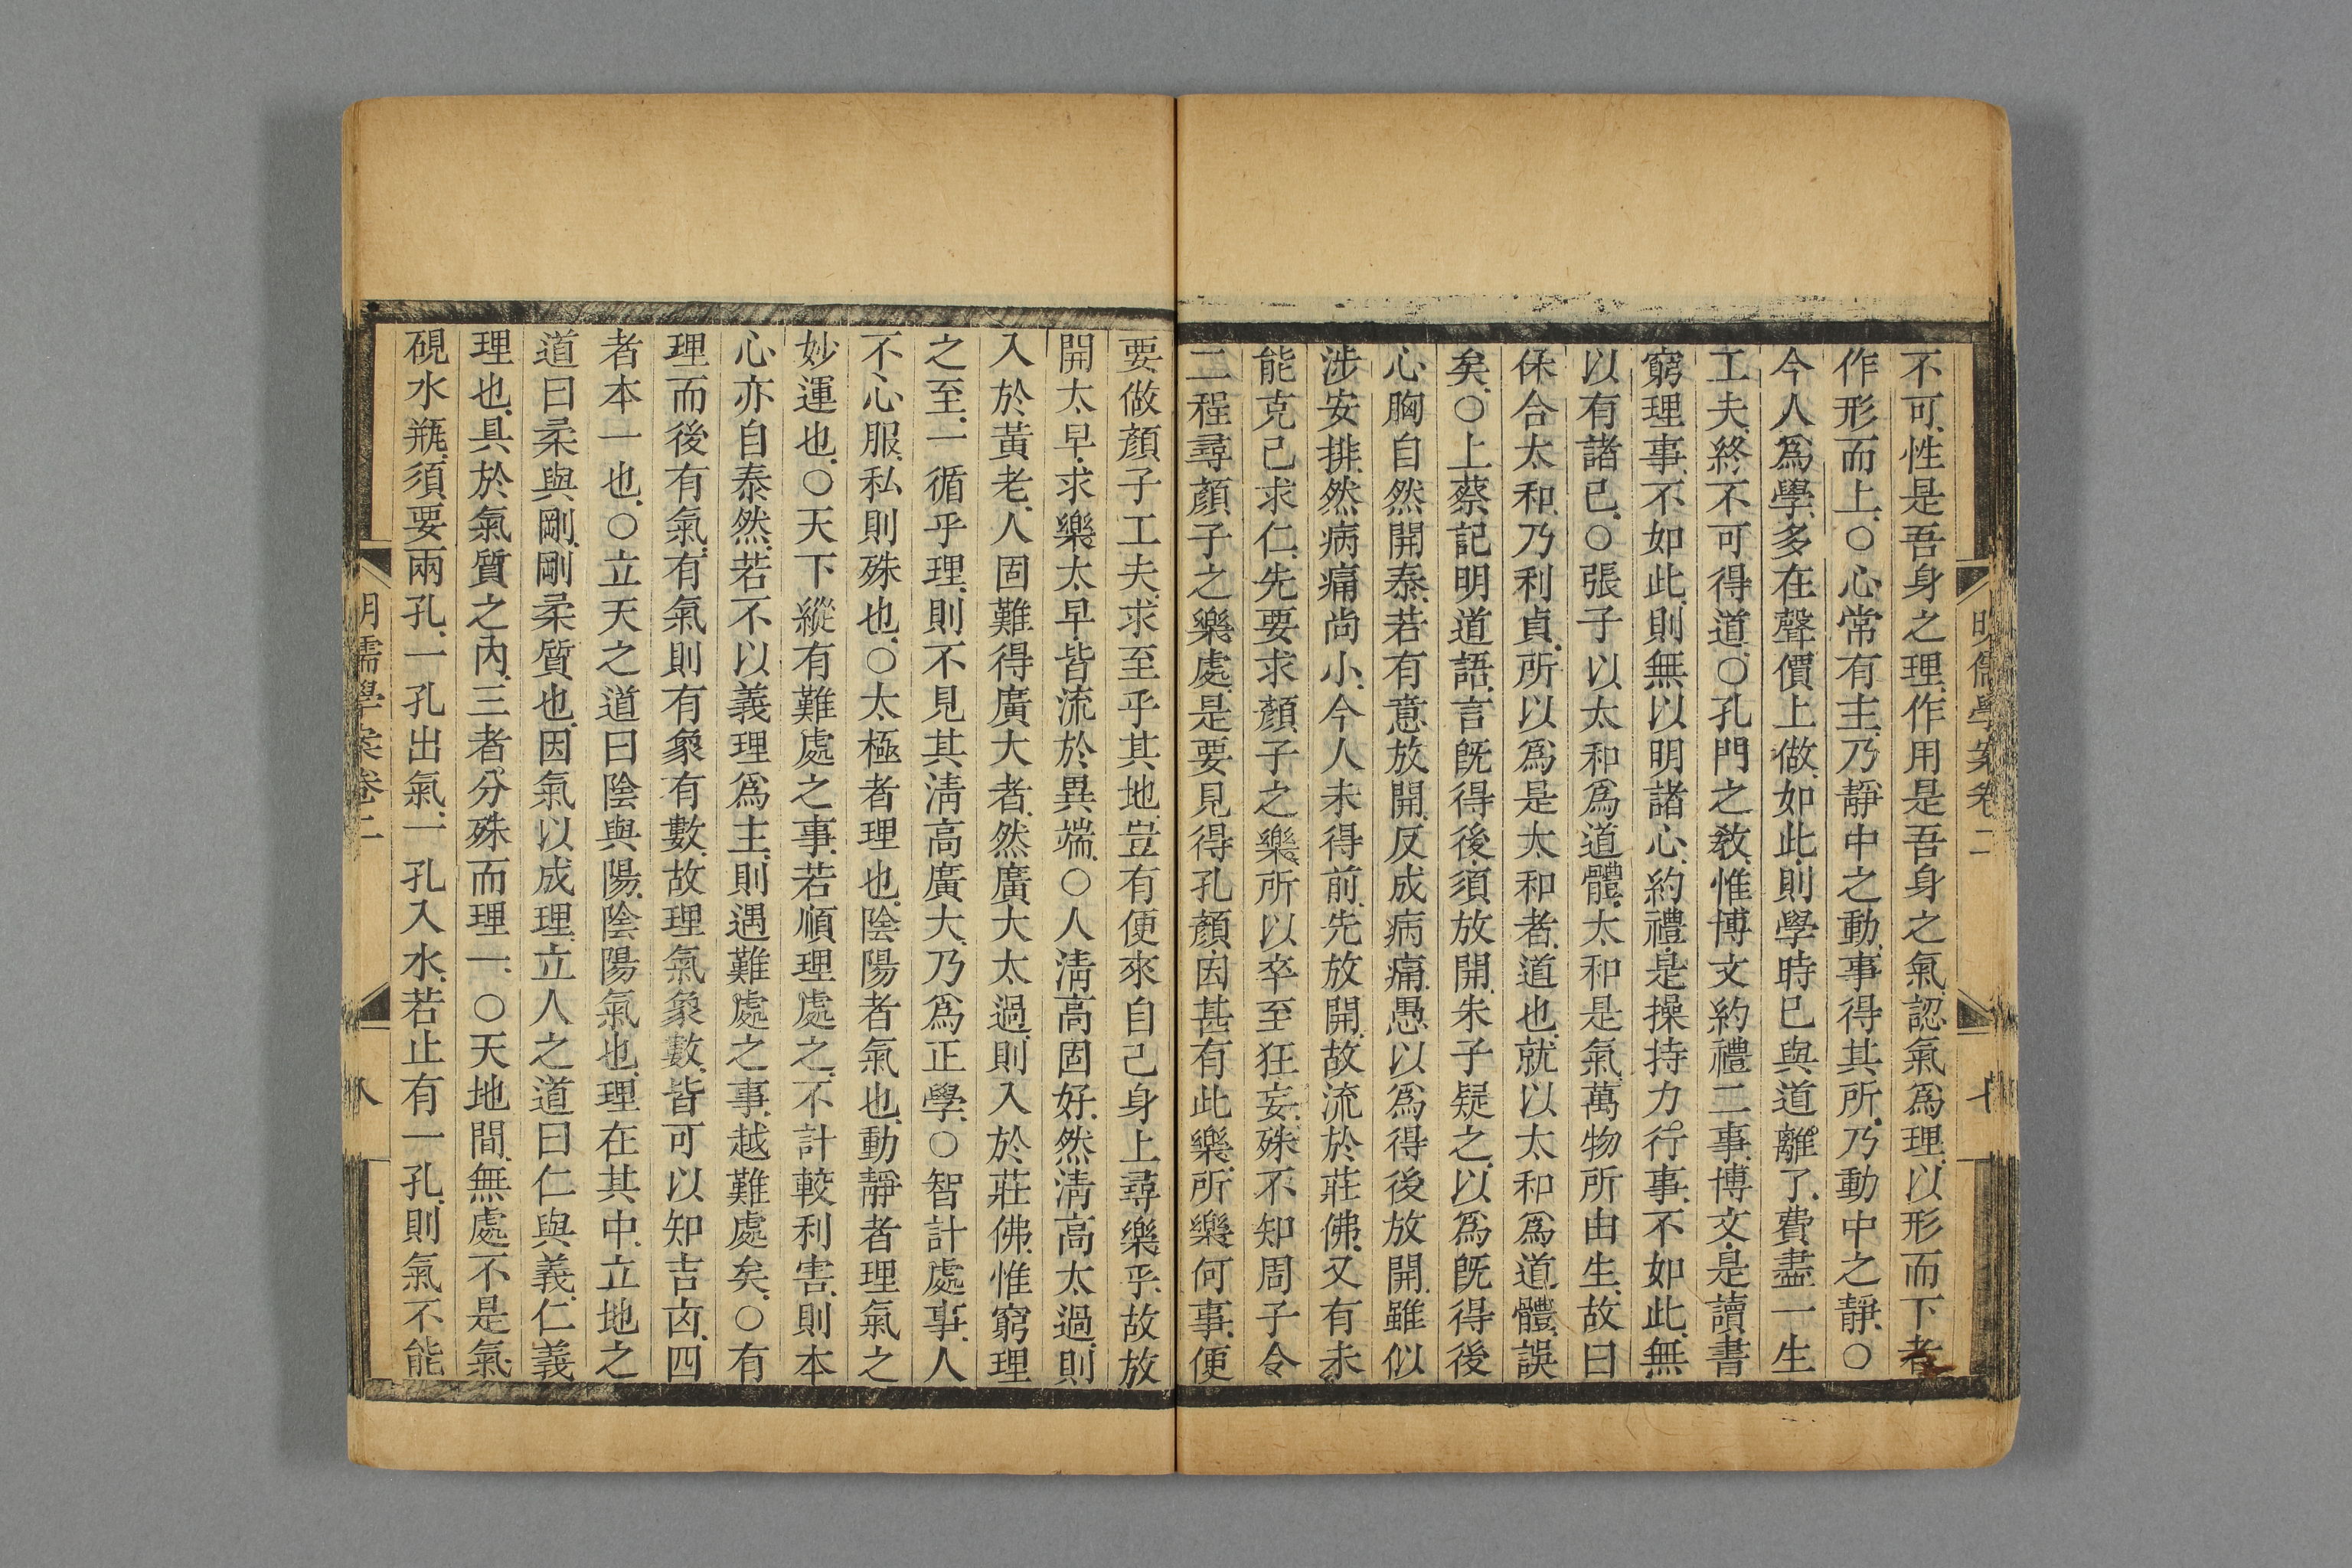 明儒學案卷二
七
不可.性是吾身之理.作用是吾身之氣.認氣爲理.以形而下者
作形而上.○心常有主.乃靜中之動.事得其所.乃動中之靜.○
今人爲學.多在聲價上做.如此.則學時已與道離了.費盡一生
工夫.終不可得道.○孔門之敎.惟博文約禮二事.博文.是讀書
窮理事.不如此.則無以明諸心.約禮.是操持力行事.不如此.無
以有諸已.○張子以太和爲道體.太和是氣.萬物所由生.故曰
保合太和.乃利貞.所以爲是太和者.道也.就以太和爲道體.誤
矣.○上蔡記明道語.言旣得後.須放開.朱子疑之.以爲旣得後
心胸自然開泰.若有意放開.反成病痛.愚以爲得後放開.雖似
涉安排.然病痛尚小.今人未得前.先放開.故流於莊佛.又有未
能克己求仁.先要求顏子之樂.所以卒至狂妄.殊不知周子令
二程尋顏子之樂處.是要見得孔顏.因甚有此樂.所樂何事.便
要做顏子工夫.求至乎其地.豈有便來自己身上尋樂乎.故放
開太早.求樂太早.皆流於異端.○人淸高固好.然淸高太過.則
入於黃老.人固難得廣大者.然廣大太過.則入於莊佛.惟窮理
之至.一循乎理.則不見其淸高廣大.乃爲正學.○智計處事.人
不心服.私則殊也.○太極者理也.陰陽者氣也.動靜者理氣之
妙運也.○天下縱有難處之事.若順理處之.不計較利害.則本
心亦自泰然.若不以義理爲主.則遇難處之事.越難處矣.○有
理而後有氣.有氣則有象有數.故理氣象數.皆可以知吉凶.四
者本一也.○立天之道曰陰與陽.陰陽氣也.理在其中.立地之
道曰柔與剛.剛柔質也.因氣以成理.立人之道曰仁與義.仁義
理也.具於氣質之內.三者分殊而理一.○天地間.無處不是氣.
硯水瓶.須要兩孔.一孔出氣.一孔入水.若止有一孔.則氣不能
明儒學案卷二
八